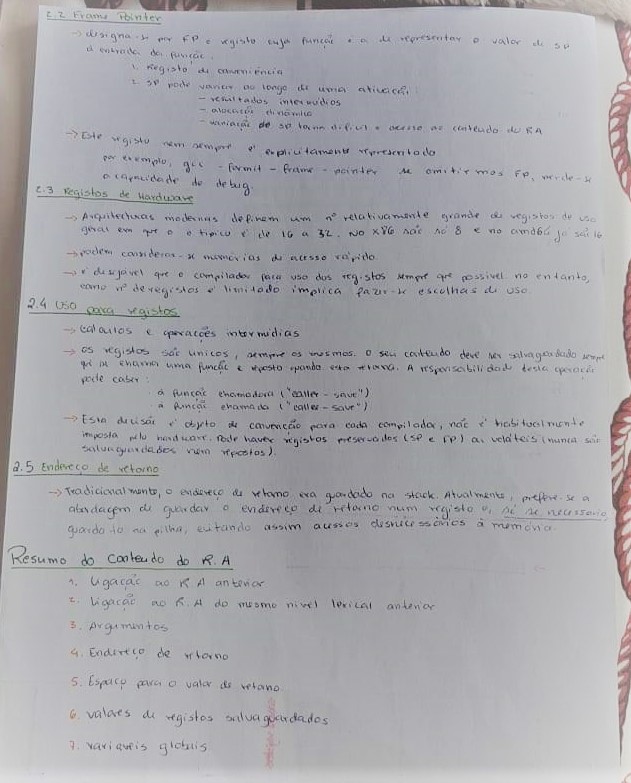 2.2 Frame Pointer
→ designa-se por FP o registo cuja função é a de representar o valor de SP
à entrada da função.
1. Registo de conveniência
2. SP pode variar ao longo de uma ativação:
- resultados intermédios
- alocação dinâmica
- variação de SP torna difícil o acesso ao conteúdo do RA
→ Este registo nem sempre é explicitamente representado
por exemplo, gcc -fomit-frame-pointer se omitirmos FP, perde-se
a capacidade de debug.
2.3 Registos de Hardware
→ Arquitecturas modernas definem um nº relativamente grande de registos de uso
geral em que o típico é de 16 a 32. No x86 são só 8 e no amd64 já são 16
→ podem considerar-se memórias de acesso rápido.
→ é desejável que o compilador faça uso dos registos sempre que possível no entanto,
como nº de registos é limitado implica fazer-se escolhas de uso.
2.4 Uso para registos
→ Cálculos e operações intermédias
→ os registos são únicos, sempre os mesmos. O seu conteúdo deve ser salvaguardado sempre
que se chama uma função e reposto quando esta retorna. A responsabilidade desta operação
pode caber:
. à função chamadora ("caller-save")
. à função chamada ("caller-save")
→ Esta decisão é objeto de convenção para cada compilador, não é habitualmente
imposta pelo hardware. Pode haver registos preservados (SP e FP) ou voláteis (nunca são
salvaguardados nem repostos).
2.5 Endereço de retorno
→ Tradicionalmente, o endereço de retorno era guardado na stack. Atualmente, prefere-se a
abordagem de guardar o endereço de retorno num registo e, só se necessário,
guardá-lo na pilha, evitando assim acessos desnecessários à memória.
Resumo do Conteúdo do R.A
1. Ligação ao R.A anterior
2. Ligação ao R.A do mesmo nível lexical anterior
3. Argumentos
4. Endereço de retorno
5. Espaço para o valor de retorno
6. valores de registos salvaguardados
7. variáveis globais